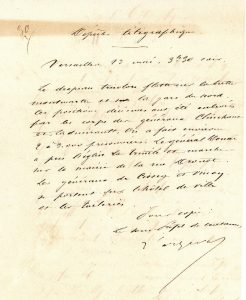 Dépêche télégraphique
Versailles 23 mai, 3h30 soir.
Le drapeau tricolore flotte sur la butte
montmartre et sur la gare du nord
les positions décisives ont été enlevées
par les corps des généraux Clinchant
et Ladmirault. On a fait environ
2 à 3000 prisonniers. Le général Douai
a pris l'église de la Trinité et marche
sur la mairie de la rue Drouot.
Les généraux de Cissey et Vinoy
se portent sur l'hôtel de ville
et les tuileries.
Pour copie:
Le sous Préfet de